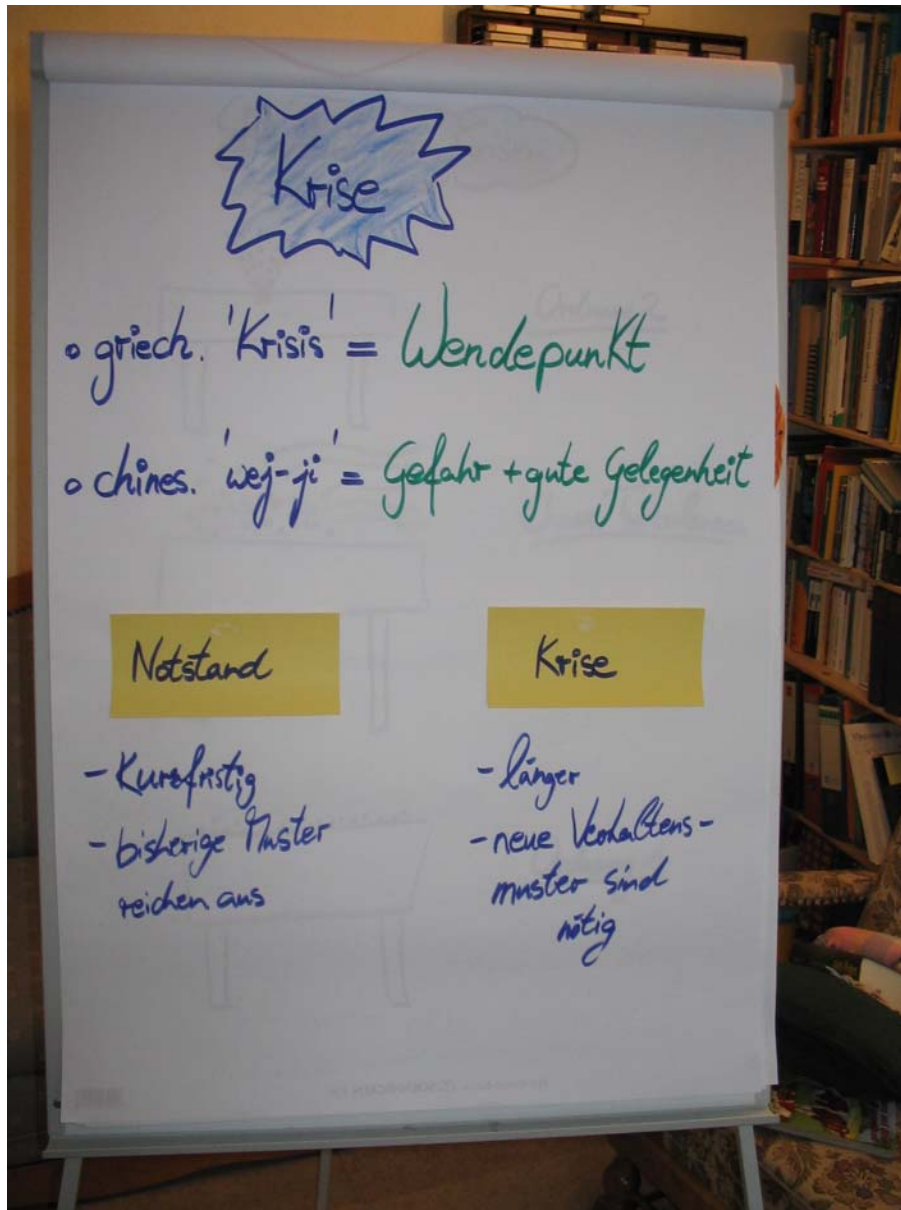 Krise
griech. 'Krisis' = Wendepunkt
chines. 'wej-ji' = Gefahr + gute Gelegenheit
Notstand
- Kurzfristig
- bisherige Muster
reichen aus
Krise
- länger
- neue Verhaltens-
muster sind
nötig